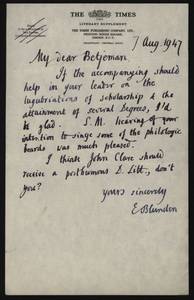 THE TIMES
LITERARY SUPPLEMENT
THE TIMES PUBLISHING COMPANY, LTD.
PRINTING HOUSE SQUARE,
LONDON, E.C.4
7 Aug 1947
My dear Betjeman
If the accompanying should
help in your leader on the
lugubriations of scholarship & the
attainment of several Degrees, I'd
be glad. S.M. hearing of your
intention to singe some of the philologic
beards was much pleased.
I think John Clare should
receive a posthumous D. Litt., don't
you?
Yours sincerely
E Blunden